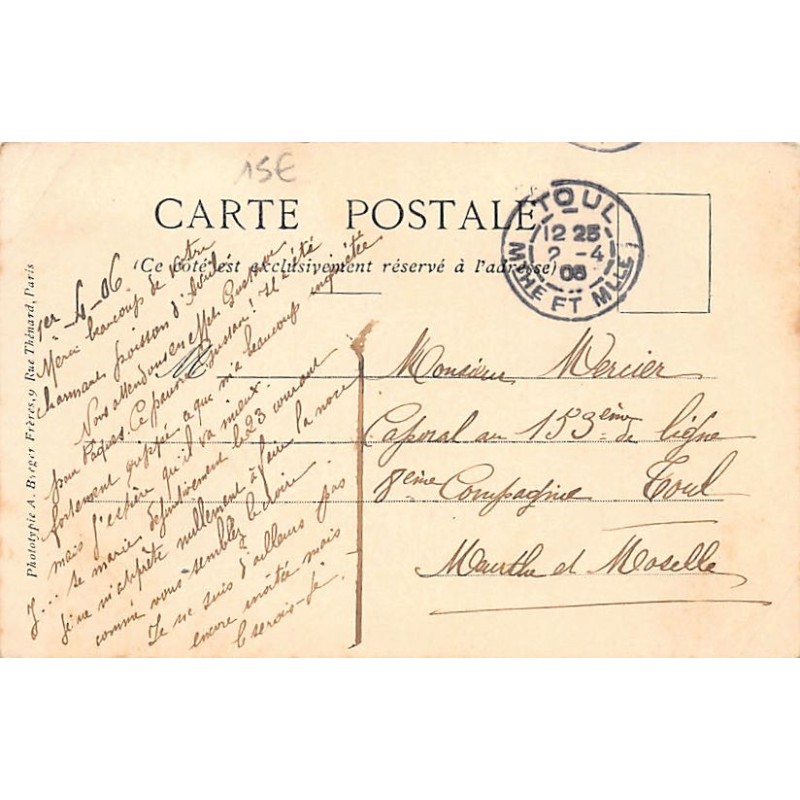 15€
CARTE POSTALE
(Ce côté est exclusivement réservé à l'adresse)
TOUL
12 25
2 -4
06
MTHE ET MLLE
Phototypie A. Berger Frères, 9 Rue Thénard, Paris
1er - 4 - 06.
Merci beaucoup de votre
charmant poisson d'Avril.
Nous attendons en effet Gustave
pour Pâques. Ce pauvre Gustave! Il a été
fortement grippé, ce que m'a beaucoup inquiétée
mais j'espère qu'il va mieux.
J... se marie définitivement le 23 courant
Je ne m'apprête nullement à faire la noce
comme vous semblez le croire
Je ne suis d'ailleurs pas
encore invitée mais
le serais-je.
Monsieur Mercier
Caporal au 153ème de ligne
8ème Compagnie Toul
Meurthe et Moselle